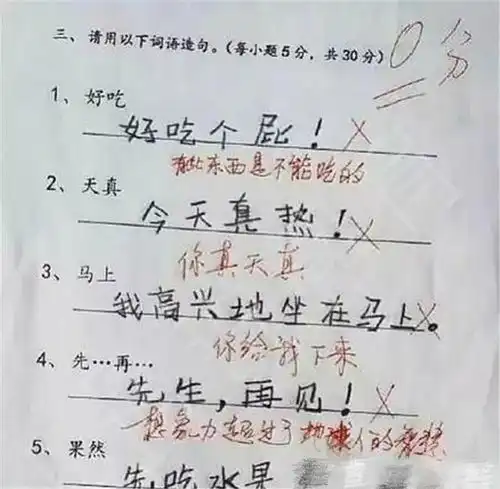 三、请用以下词语造句。(每小题5分，共30分)
0分
1、好吃
好吃个屁！
有些东西是不能吃的
2、天真
今天真热！
你真天真
3、马上
我高兴地坐在马上。
你给我下来
4、先…再…
先生，再见！
想象力超过了地球人的智慧
5、果然
先吃水果